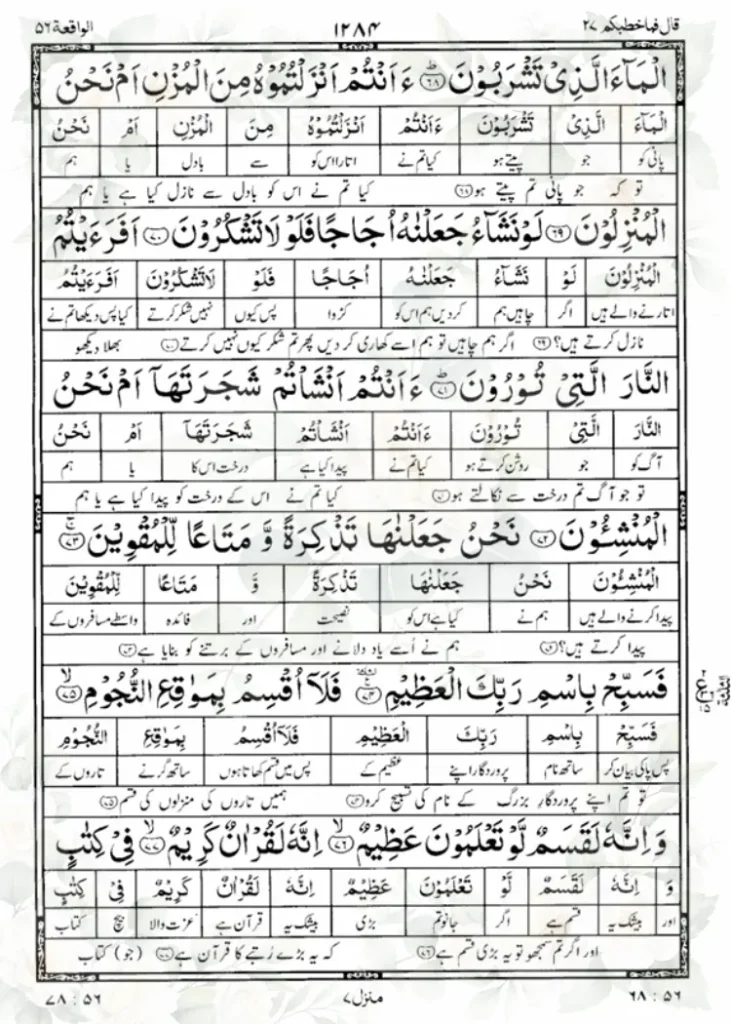 قال فما خطبکم ۲۷ ۱۲۸۴ الواقعة ۵۶
الْمَآءَ الَّذِیْ تَشْرَبُوْنَ ﴿۶۸﴾ ءَاَنْتُمْ اَنْزَلْتُمُوْهُ مِنَ الْمُزْنِ اَمْ نَحْنُ
الْمَآءَ الَّذِیْ تَشْرَبُوْنَ ءَاَنْتُمْ اَنْزَلْتُمُوْهُ مِنَ الْمُزْنِ اَمْ نَحْنُ
پانی کو جو پیتے ہو کیا تم نے اتارا اس کو سے بادل یا ہم
تو کہ جو پانی تم پیتے ہو ﴿۶۸﴾ کیا تم نے اس کو بادل سے نازل کیا ہے یا ہم
الْمُنْزِلُوْنَ ﴿۶۹﴾ لَوْ نَشَآءُ جَعَلْنٰهُ اُجَاجًا فَلَوْ لَا تَشْكُرُوْنَ ﴿۷۰﴾ اَفَرَءَیْتُمُ
الْمُنْزِلُوْنَ لَوْ نَشَآءُ جَعَلْنٰهُ اُجَاجًا فَلَوْ لَاتَشْكُرُوْنَ اَفَرَءَیْتُمُ
اتارنے والے ہیں اگر چاہیں ہم کردیں ہم اس کو کڑوا پس کیوں نہیں شکر کرتے کیا پس دیکھا تم نے
نازل کرتے ہیں؟ ﴿۶۹﴾ اگر ہم چاہیں تو ہم اسے کھاری کر دیں پھر تم شکر کیوں نہیں کرتے ﴿۷۰﴾ بھلا دیکھو
النَّارَ الَّتِیْ تُوْرُوْنَ ﴿۷۱﴾ ءَاَنْتُمْ اَنْشَاْتُمْ شَجَرَتَهَاۤ اَمْ نَحْنُ
النَّارَ الَّتِیْ تُوْرُوْنَ ءَاَنْتُمْ اَنْشَاْتُمْ شَجَرَتَهَاۤ اَمْ نَحْنُ
آگ کو جو روشن کرتے ہو کیا تم نے پیدا کیا ہے درخت اس کا یا ہم
تو جو آگ تم درخت سے نکالتے ہو ﴿۷۱﴾ کیا تم نے اس کے درخت کو پیدا کیا ہے یا ہم
الْمُنْشِـُٔوْنَ ﴿۷۲﴾ نَحْنُ جَعَلْنٰهَا تَذْكِرَةً وَّ مَتَاعًا لِّلْمُقْوِیْنَ ﴿۷۳﴾
الْمُنْشِـُٔوْنَ نَحْنُ جَعَلْنٰهَا تَذْكِرَةً وَّ مَتَاعًا لِّلْمُقْوِیْنَ
پیدا کرنے والے ہیں ہم نے کیا ہے اس کو نصیحت اور فائدہ واسطے مسافروں کے
پیدا کرتے ہیں؟ ﴿۷۲﴾ ہم نے اُسے یاد دلانے اور مسافروں کے برتنے کو بنایا ہے ﴿۷۳﴾
فَسَبِّحْ بِاسْمِ رَبِّكَ الْعَظِیْمِ ﴿۷۴﴾ فَلَاۤ اُقْسِمُ بِمَوٰقِعِ النُّجُوْمِ ﴿۷۵﴾
فَسَبِّحْ بِاسْمِ رَبِّكَ الْعَظِیْمِ فَلَاۤ اُقْسِمُ بِمَوٰقِعِ النُّجُوْمِ
پس پاکی بیان کر ساتھ نام پروردگار اپنے عظیم کے پس میں قسم کھاتا ہوں ساتھ گرنے تاروں کے
تو تم اپنے پروردگارِ بزرگ کے نام کی تسبیح کرو ﴿۷۴﴾ ہمیں تاروں کی منزلوں کی قسم ﴿۷۵﴾
وَ اِنَّهٗ لَقَسَمٌ لَّوْ تَعْلَمُوْنَ عَظِیْمٌ ﴿۷۶﴾ اِنَّهٗ لَقُرْاٰنٌ كَرِیْمٌ ﴿۷۷﴾ فِیْ كِتٰبٍ
وَ اِنَّهٗ لَقَسَمٌ لَّوْ تَعْلَمُوْنَ عَظِیْمٌ اِنَّهٗ لَقُرْاٰنٌ كَرِیْمٌ فِیْ كِتٰبٍ
اور بیشک یہ قسم ہے اگر جانو تم بڑی بیشک یہ قرآن ہے عزت والا بیچ کتاب
اور اگر تم سمجھو تو یہ بڑی قسم ہے ﴿۷۶﴾ کہ یہ بڑے رُتبے کا قرآن ہے ﴿۷۷﴾ (جو) کتاب
۵۶ : ۶۸ منزل ۷ ۵۶ : ۷۸